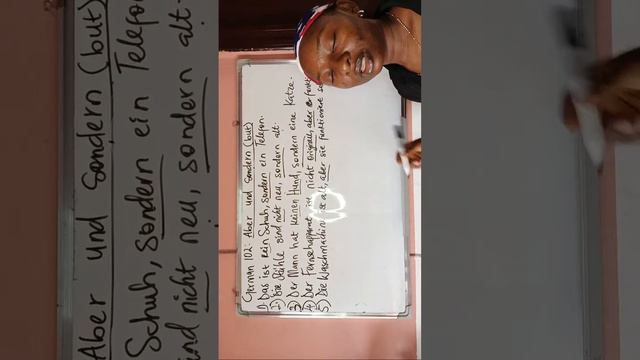 German 102: Aber und Sondern (but)
1) Das ist kein Schuh, sondern ein Telefon.
2) Die Stühle sind nicht neu, sondern alt.
3) Der Mann hat keinen Hund, sondern eine Katze.
4) Der Fernsehapparat ist nicht original, aber
5) Die Waschmaschine ist alt, aber sie funktioniert
Aber und Sondern (but)
Schuh, sondern ein Telefon
nicht neu, sondern alt.